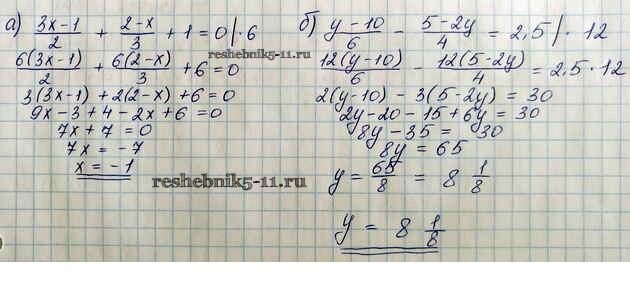 а) (3x-1)/2 + (2-x)/3 + 1 = 0 |·6
reshebnik5-11.ru
6(3x-1)/2 + 6(2-x)/3 + 6 = 0
3(3x-1) + 2(2-x) + 6 = 0
9x - 3 + 4 - 2x + 6 = 0
7x + 7 = 0
7x = -7
x = -1
reshebnik5-11.ru
б) (y-10)/6 - (5-2y)/4 = 2,5 |· 12
12(y-10)/6 - 12(5-2y)/4 = 2,5·12
2(y-10) - 3(5-2y) = 30
2y - 20 - 15 + 6y = 30
8y - 35 = 30
8y = 65
y = 65/8 = 8 1/8
y = 8 1/8